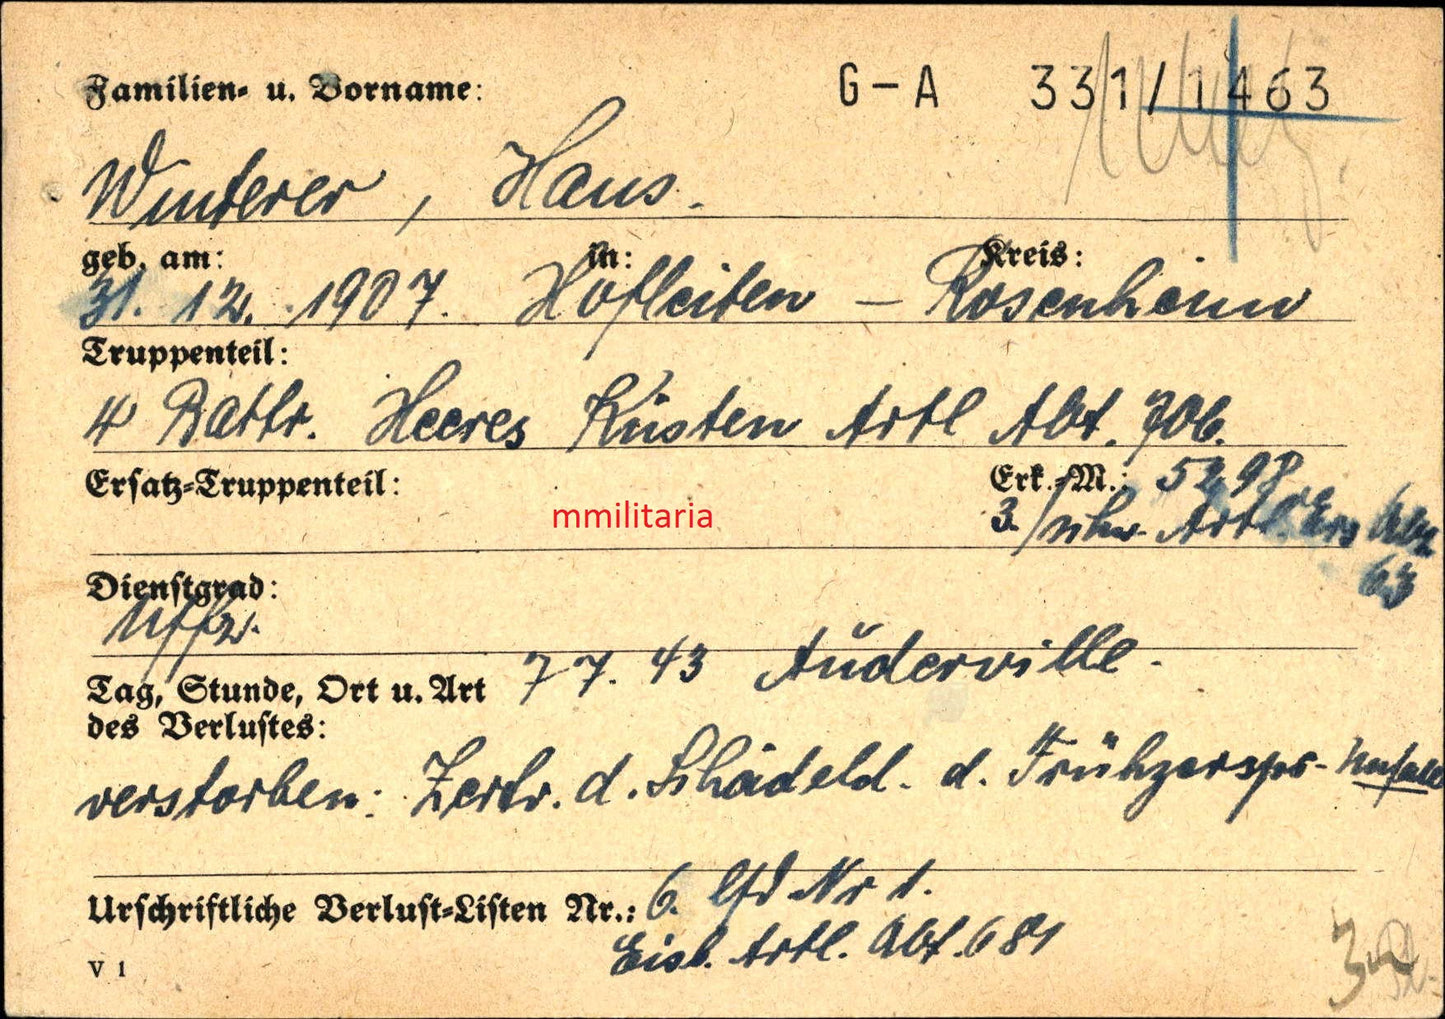 Familien- u. Vorname: G-A 331/1463
Winterer, Hans.
geb. am: in: Kreis:
31. 12. 1907. Hofleiten – Rosenheim
Truppenteil:
4 Battr. Heeres Küsten Artl Abt. 706.
Ersatz-Truppenteil: Erk.-M.: 5298
mmilitaria
3./schw. Artl. Ers Abt
63
Dienstgrad:
Uffz.
Tag, Stunde, Ort u. Art 7 7. 43 Auderville.
des Verlustes:
verstorben: Zertr. d. Schädeld. d. Frühzerspr- Unfall
Urschriftliche Verlust-Listen Nr.: 6. lfd Nr 1.
Eisb. Artl. Abt. 681
V 1